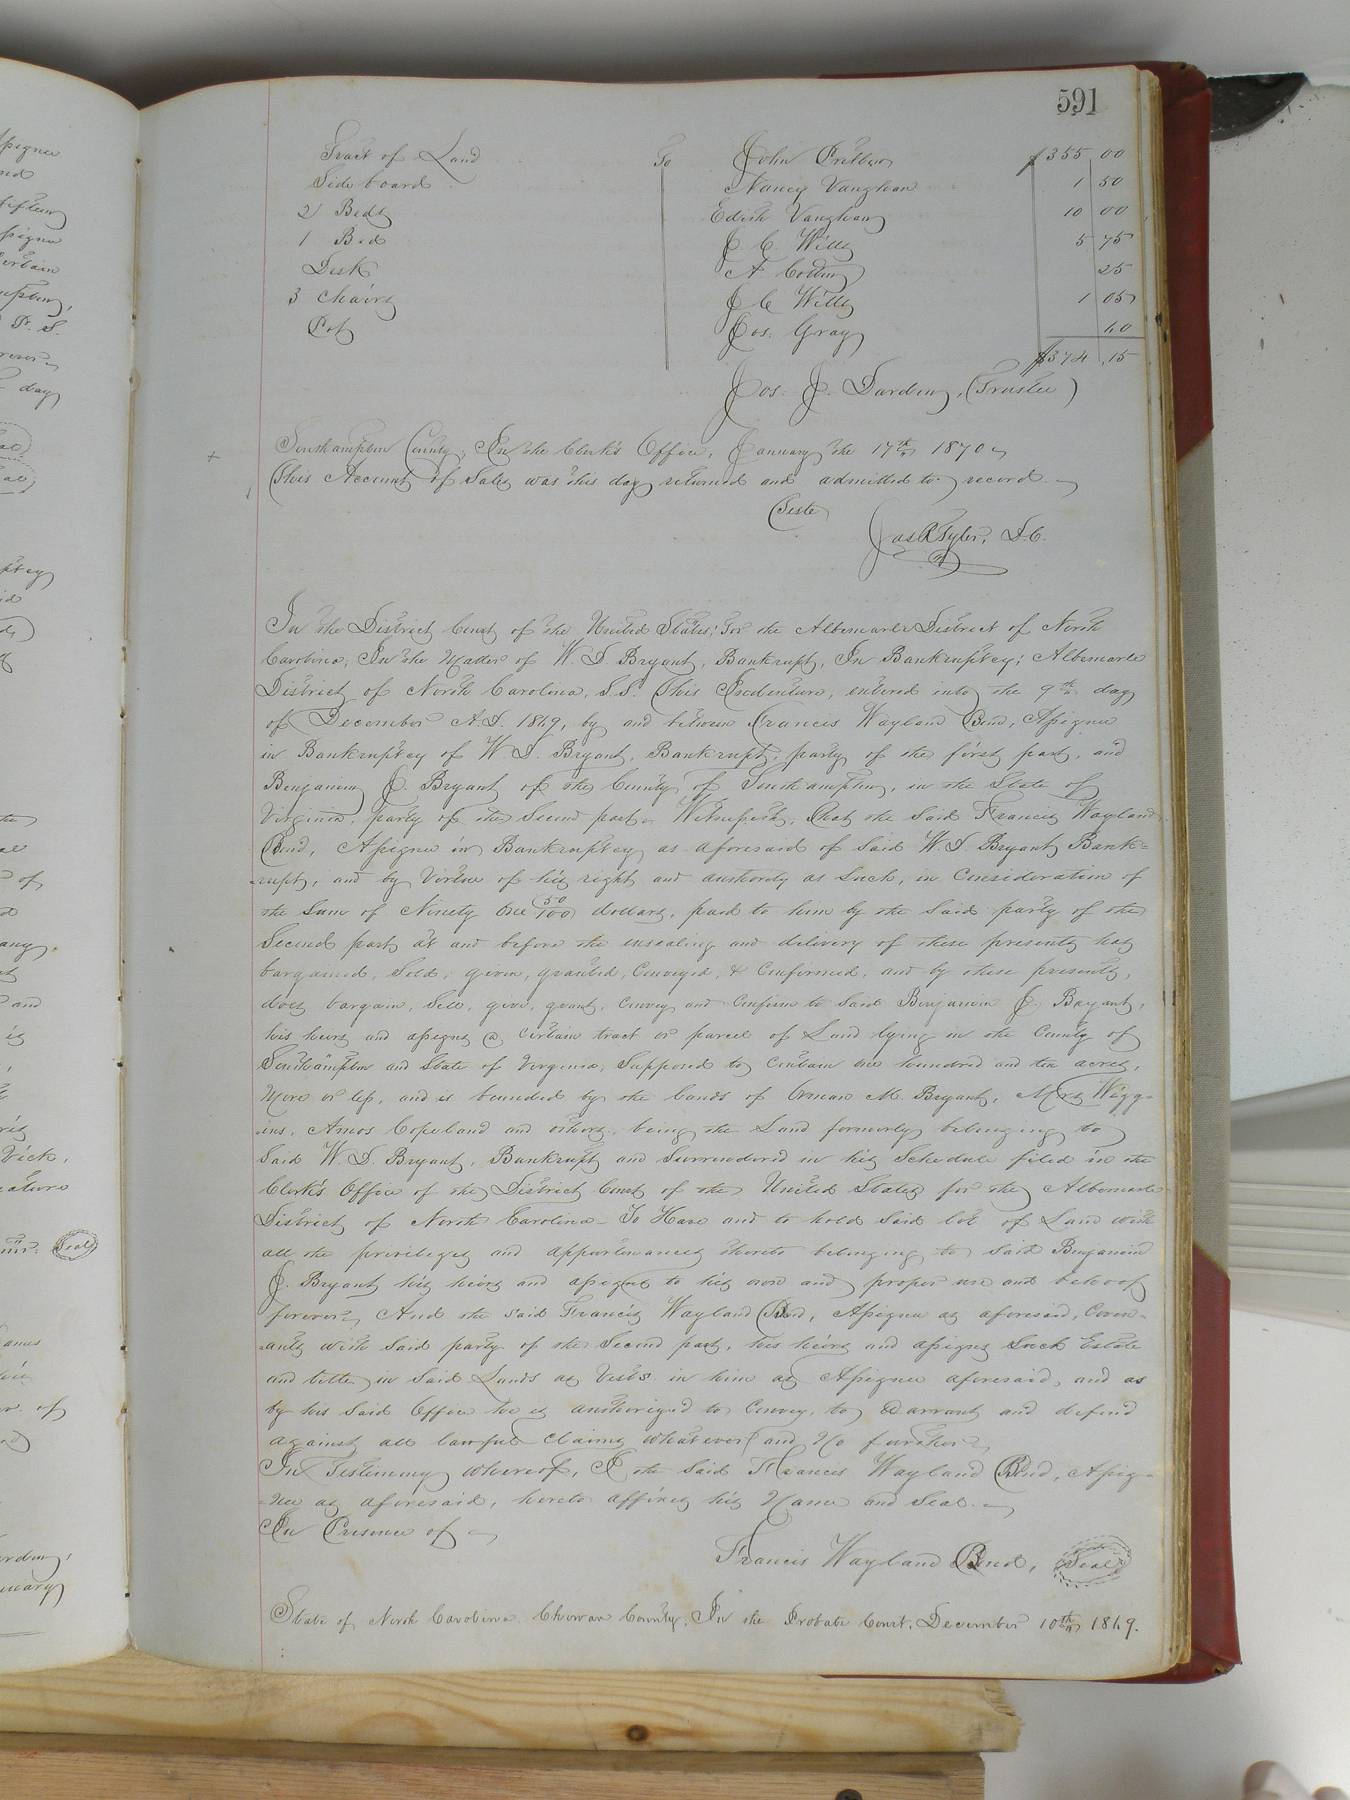 591
Tract of Land To John Pretlow $355 00
Side board Nancy Vaughan 1 50
2 Beds Edith Vaughan 10 00
1 Bed J. C. Wills 5 75
Desk A 25
3 Chairs J C Wills 1 05
Pot Jos. Gray 60
$374.15
Jos. J. Darden, (Trustee)
Southampton County, In the Clerk's Office, January the 17th 1870
This Account of Sales was this day returned and admitted to record.
Teste
Jas R Tyler, D.C.
In the District Court of the United States; For the Albemarle District of North
Carolina, In the Matter of W. D. Bryant, Bankrupt, In Bankruptcy; Albemarle
District of North Carolina, S.S. This Indenture, entered into the 9th day
of December A.D. 1869, by and between Francis Wayland Bond, Assignee
in Bankruptcy of W D. Bryant, Bankrupt, party of the first part, and
Benjamin J. Bryant of the County of Southampton, in the State of
Virginia, party of the Second part. Witnesseth, That the Said Francis Wayland
Bond, Assignee in Bankruptcy as aforesaid of Said W. D. Bryant Bank=
=rupt, and by Virtue of his right and authority as Such, in Consideration of
the Sum of Ninety One 50/100 dollars, paid to him by the Said party of the
Second part at and before the ensealing and delivery of these presents has
bargained, Sold, given, granted, Conveyed, & Confirmed, and by these presents,
does bargain, Sell, give, grant, Convey and Confirm to Said Benjamin J. Bryant,
his heirs and assigns a Certain tract or parcel of Land lying in the County of
Southampton and State of Virginia, Supposed to Contain one hundred and ten acres,
More or less, and is bounded by the lands of Orman M. Bryant, Mrs Wigg-
=ins, Amos Copeland and others, being the Land formerly belonging to
Said W. D. Bryant, Bankrupt and Surrendered in his Schedule filed in the
Clerk's Office of the District Court of the United States for the Albemarle
District of North Carolina - To Have and to hold Said lot of Land with
all the privileges and appurtenances thereto belonging to Said Benjamin
J. Bryant his heirs and assigns to his own and proper use and behoof
forever, And the said Francis Wayland Bond, Assignee as aforesaid, Coven-
=ants with Said party of the Second part, his heirs and assigns Such Estate
and title in Said Lands as Vests in him as Assignee aforesaid, and as
by his Said Office he is authorized to Convey, to Warrant and defend
against all lawful Claims whatever and No further
In Testimony whereof, I the Said Francis Wayland Bond, Assig-
=nee as aforesaid, hereto affixes his Name and Seal.
In Presence of
Francis Wayland Bond, Seal
State of North Carolina Chowan County, In the Probate Court, December 10th 1869.